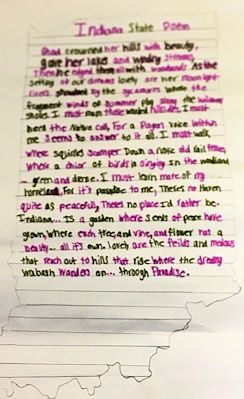 Indiana State Poem
God crowned her hills with beauty,
gave her lakes and winding streams,
Then he edged them all with woodlands As the
setting of our dreams lovely are her moonlight
rivers shadowed by the sycamores where the
fragrant winds of summer play along the willowed
shores. I must roam these wooded hillsides, I must
heed the Native Call, For a Pagan voice within
me seems to answer to it all. I must walk
where squirrels scamper Down a rustic old rail fence,
where a choir of birds is singing in the woodland
green and dense. I must learn more of my
homeland, For it's paradise to me, Theres no Haven
quite as peaceful, Theres no place I'd rather be.
Indiana... Is a garden where seeds of peace have
grown, Where each tree, and vine, and flower has a
beauty... all it's own. Lovely are the feilds and
that reach out to hills that rise where the dreamy
Wabash Wanders on... through Paradise.